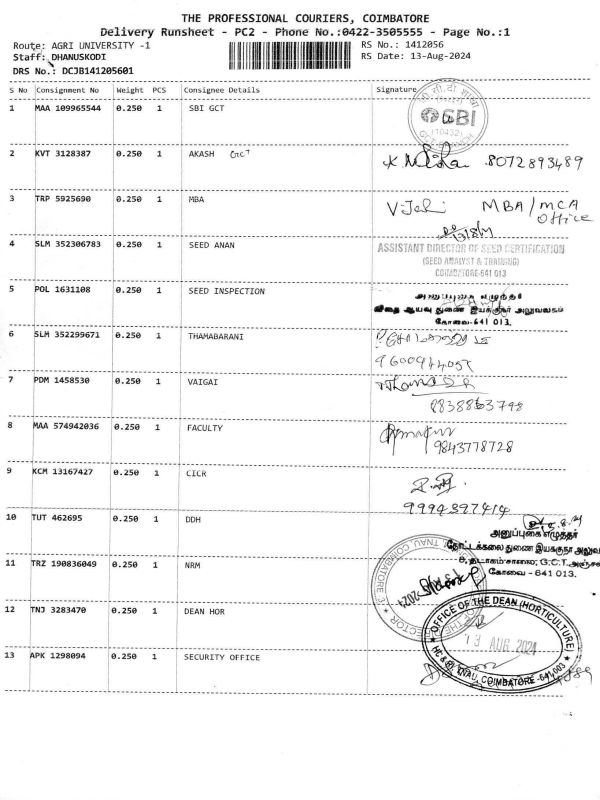 THE PROFESSIONAL COURIERS, COIMBATORE
Delivery Runsheet - PC2 - Phone No.:0422-3505555 - Page No.:1
Route: AGRI UNIVERSITY -1 RS No.: 1412056
Staff: DHANUSKODI RS Date: 13-Aug-2024
DRS No.: DCJB141205601
S No Consignment No Weight PCS Consignee Details Signature
1 MAA 109965544 0.250 1 SBI GCT
SBI
(10432)
2 KVT 3128387 0.250 1 AKASH GCT 8072893489
3 TRP 5925690 0.250 1 MBA MBA/MCA
office
4 SLM 352306783 0.250 1 SEED ANAN
ASSISTANT DIRECTOR OF SEED CERTIFICATION
(SEED ANALYST & TRAINING)
COIMBATORE-641 013
5 POL 1631108 0.250 1 SEED INSPECTION
விதை ஆய்வு துணை இயக்குநர் அலுவலகம்
கோவை-641 013.
6 SLM 352299671 0.250 1 THAMABARANI
7 PDM 1458530 0.250 1 VAIGAI
8 MAA 574942036 0.250 1 FACULTY
9843778728
9 KCM 13167427 0.250 1 CICR
9994397414
10 TUT 462695 0.250 1 DDH
அனுப்புகை எழுத்தர்
தோட்டக்கலை துணை இயக்குநர்
தடாகம் சாலை, G.C.T.
கோவை - 641 013.
11 TRZ 190836049 0.250 1 NRM
TNAU, COIMBATORE
12 TNJ 3283470 0.250 1 DEAN HOR
OFFICE OF THE DEAN (HORTICULTURE)
13 AUG 2024
TNAU, COIMBATORE-641 003
13 APK 1298094 0.250 1 SECURITY OFFICE